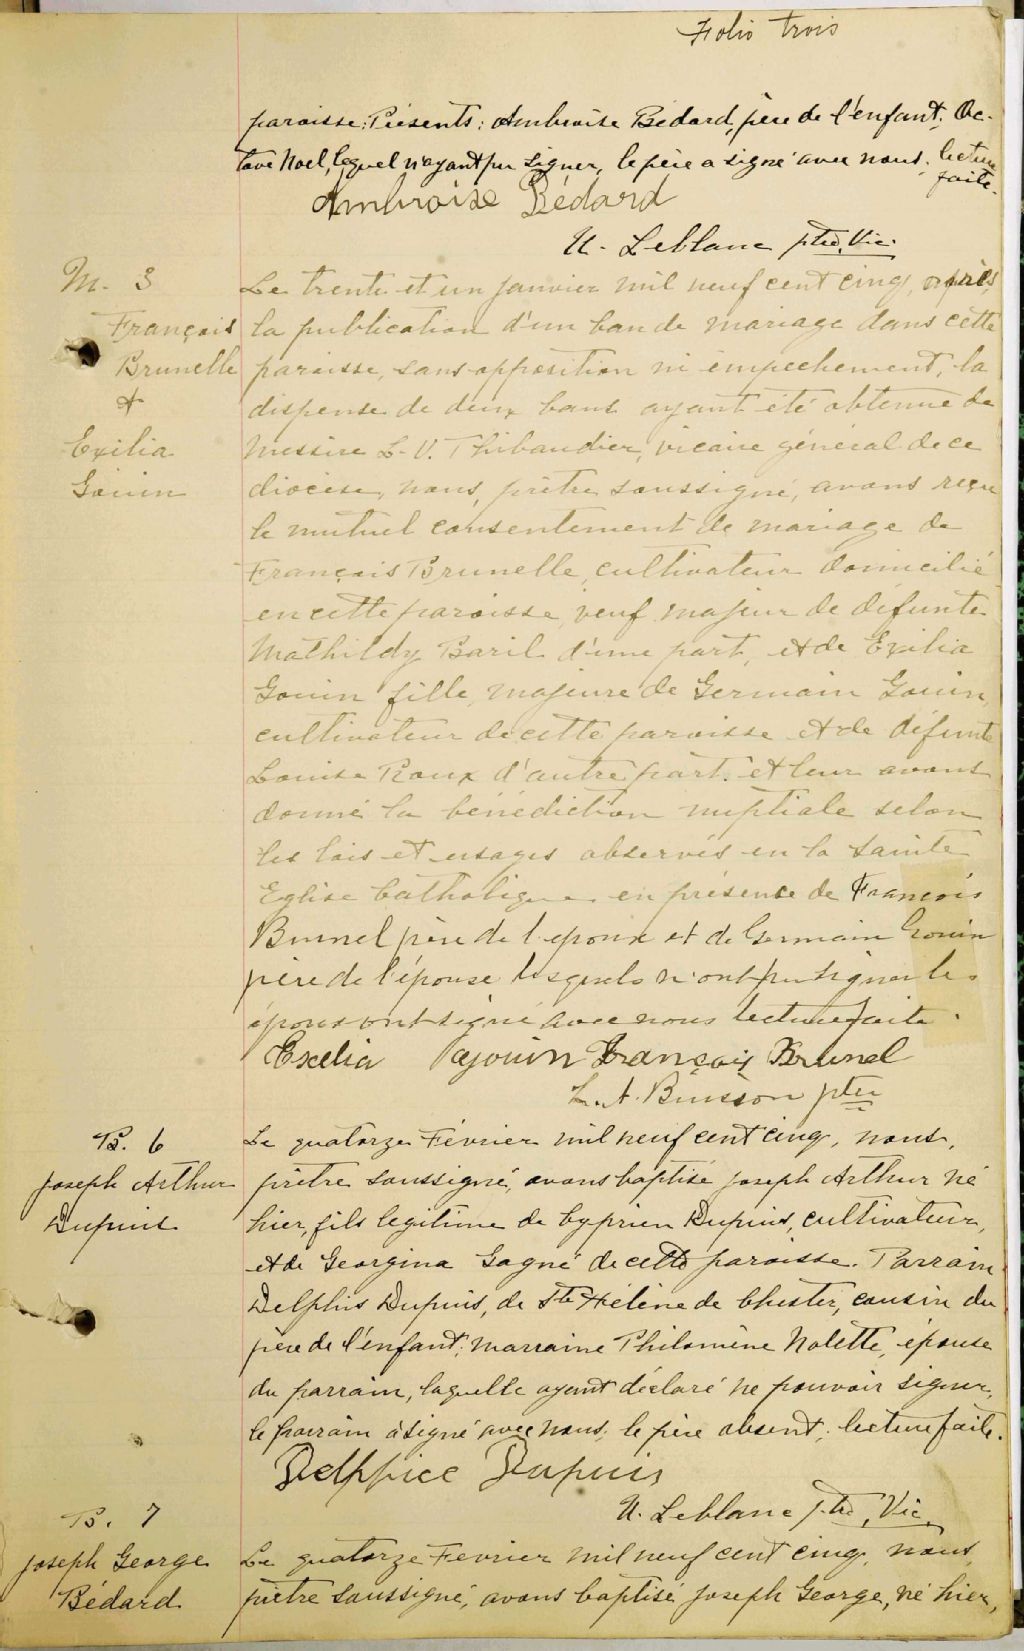 Folio trois
paroisse; Présents: Ambroise Bédard, père de l'enfant, Oc-
tave Noel, lequel n'ayant pu signer, le père a signé avec nous, lecture
faite.
Ambroise Bédard
N. Leblanc ptre, Vic.
M. 3
François
Brunelle
&
Exilia
Gouin
Le trente et un janvier mil neuf cent cinq, après
la publication d'un ban de mariage dans cette
paroisse, sans opposition ni empechement, la
dispense de deux bans ayant été obtenue de
Messire L. V. Thibaudier, vicaire général de ce
diocèse, nous, prêtre soussigné, avons reçu
le mutuel consentement de mariage de
François Brunelle, cultivateur domicilié
en cette paroisse, veuf majeur de défunte
Mathildy Baril d'une part, et de Exilia
Gouin fille majeure de Germain Gouin,
cultivateur de cette paroisse et de défunte
Louise Roux d'autre part. et leur avons
donné la bénédiction nuptiale selon
les lois et usages observés en la Sainte
Eglise Catholique en présence de François
Brunel père de l'epoux et de Germain Gouin
père de l'épouse lesquels n'ont pu signer les
époux ont signé avec nous lecture faite.
Exelia Gouin François Brunel
L. A. Buisson ptre
B. 6
Joseph Arthur
Dupuis
Le quatorze Février mil neuf cent cinq, nous,
prêtre soussigné, avons baptisé Joseph Arthur né
hier, fils legitime de Cyprien Dupuis, cultivateur,
et de Georgina Gagné de cette paroisse. Parrain
Delphis Dupuis, de Ste Hélène de Chester, cousin du
père de l'enfant; marraine Philomène Nolette, épouse
du parrain, laquelle ayant déclaré ne pouvoir signer,
le parrain a signé avec nous; le père absent; lecture faite.
Delphice Dupuis
N. Leblanc ptre, Vic.
B. 7
Joseph George
Bédard
Le quatorze Fevrier mil neuf cent cinq, nous,
prêtre soussigné, avons baptisé Joseph George, né hier,